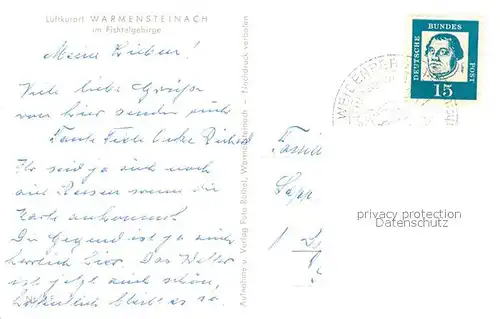 Luftkurort WARMENSTEINACH
im Fichtelgebirge
Meine Lieben!
Viele liebe Grüße
von hier senden euch
Tante Onkel Richard
Ihr seid ja auch noch
auf Reisen wenn die
Karte ankommt
Die Gegend ist ja auch
herrlich hier. Das Wetter
ist jetzt auch schön,
hoffentlich bleibt es so.
Aufnahme u. Verlag Foto Warmensteinach — Nachdruck verboten
DEUTSCHE BUNDES POST
15
WEIDENBERG
Famil
Sapp
privacy protection
www.ansichtskarten-center.de